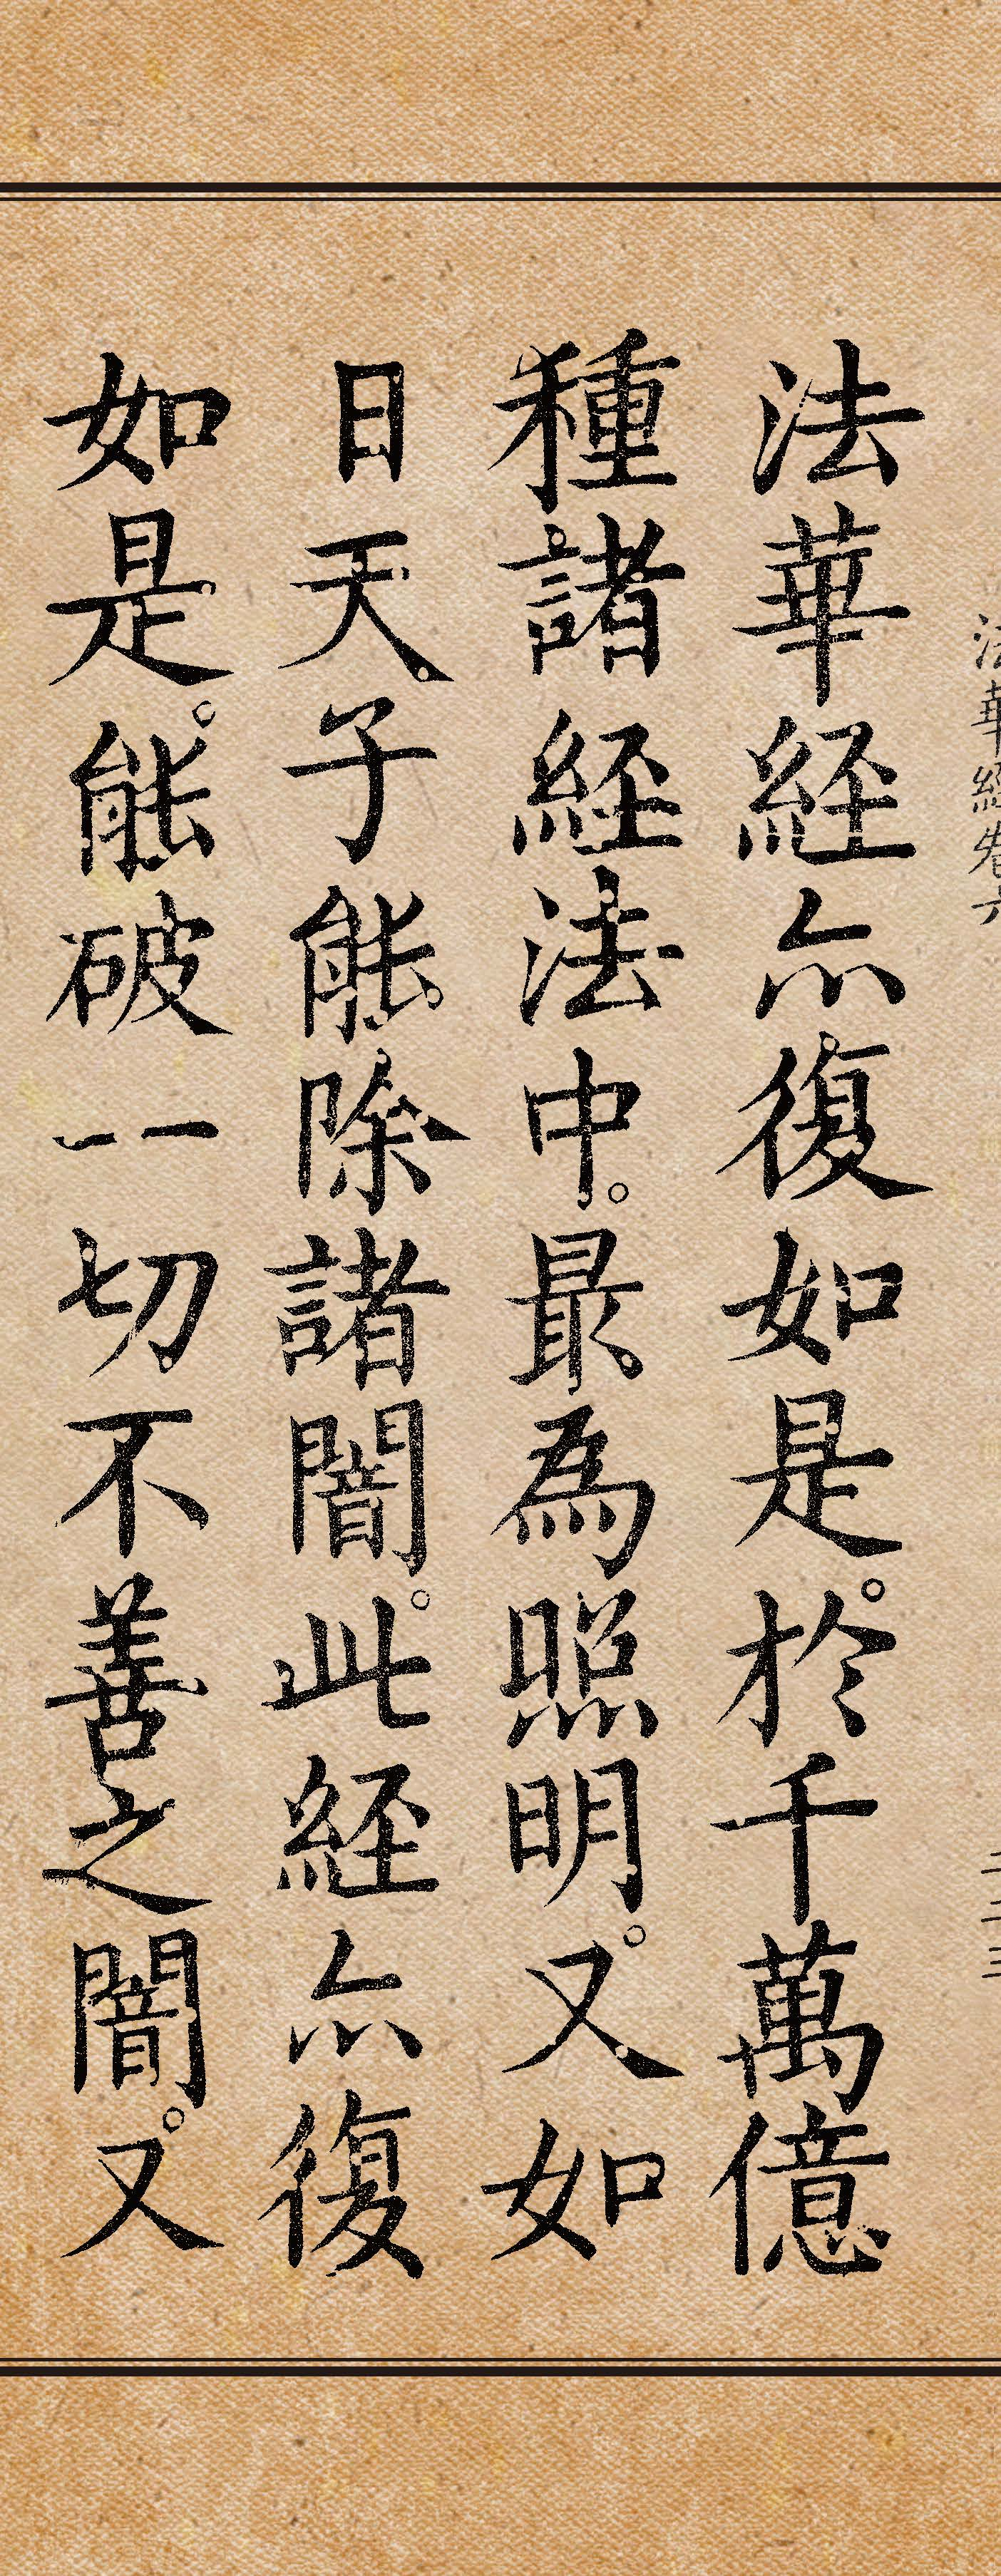 法華経卷六
二二三
法華経亦復如是。於千萬億
種諸経法中。最為照明。又如
日天子能除諸闇。此経亦復
如是。能破一切不善之闇。又